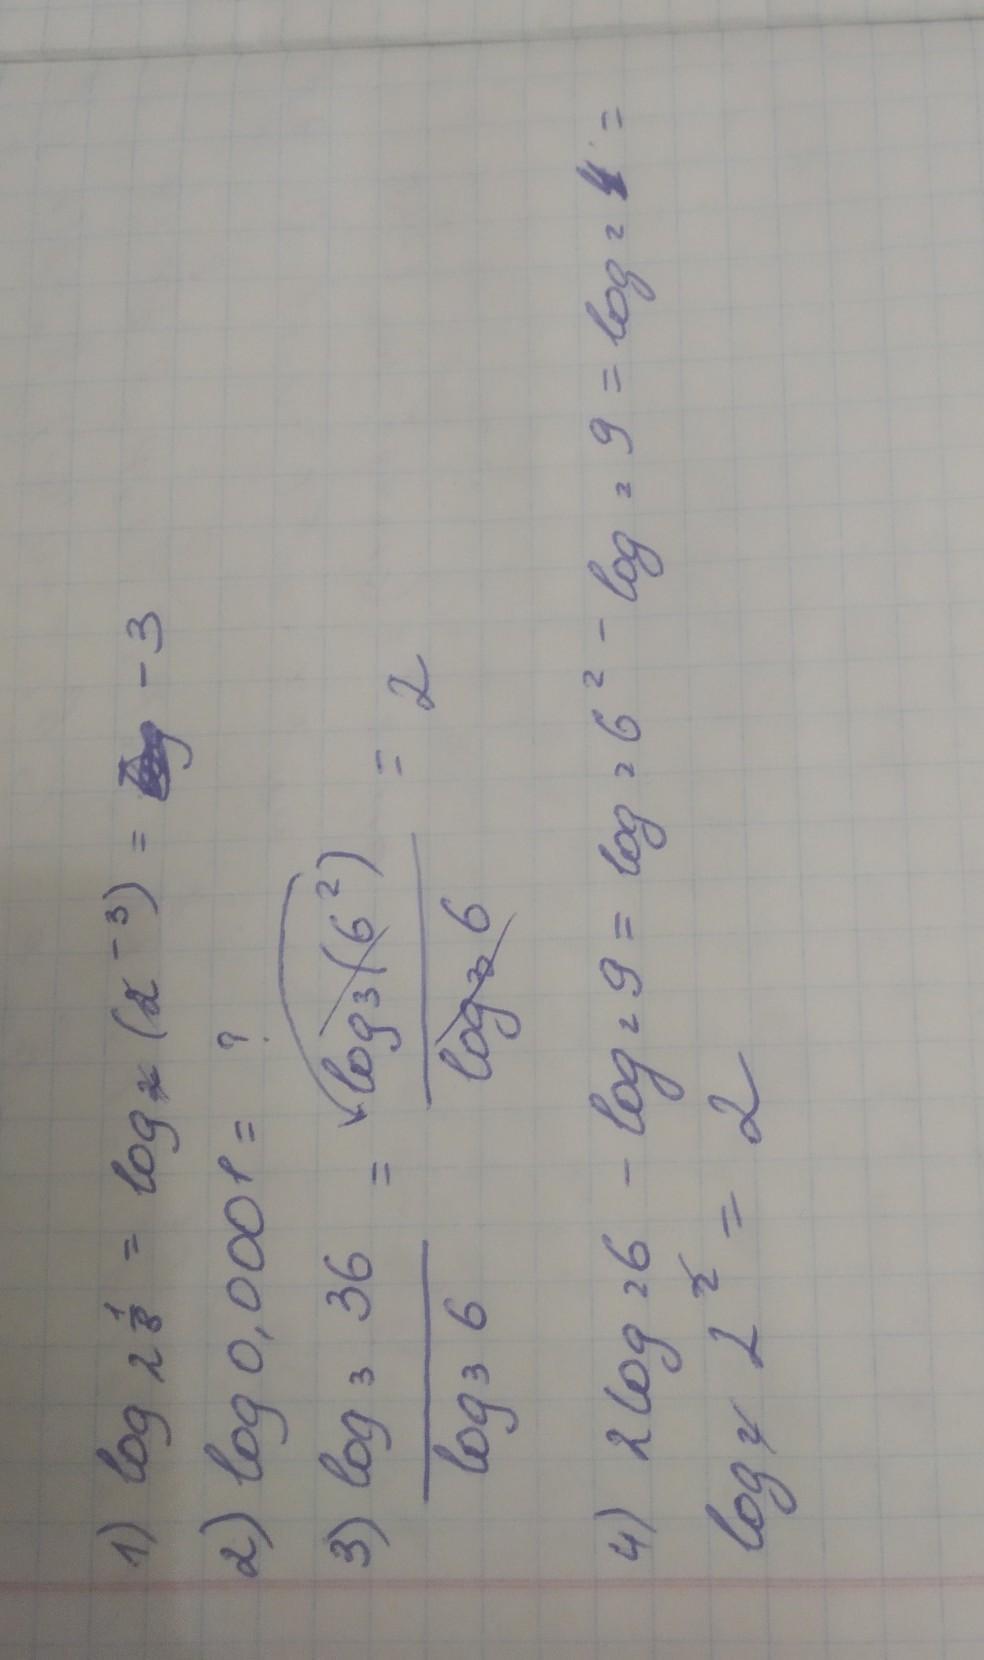 1) log₂ 1/8 = log₂(2⁻³) = -3
2) log 0,0001 = ?
3) log₃ 36 / log₃ 6 = log₃(6²) / log₃ 6 = 2
4) 2log₂6 - log₂9 = log₂6² - log₂9 = log₂4 =
log₂ 2² = 2